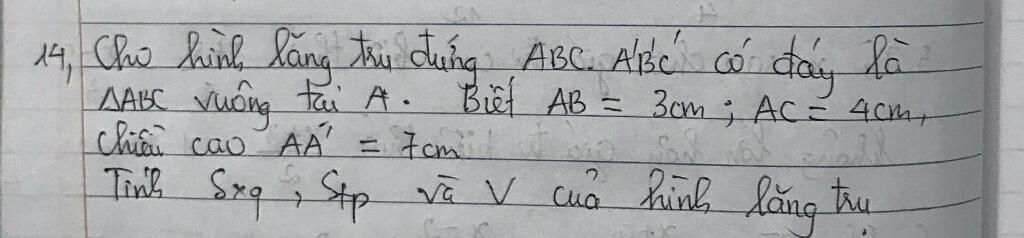 14, Cho hình lăng trụ đứng ABC.A'B'C' có đáy là
ΔABC vuông tại A. Biết AB = 3cm; AC = 4cm,
chiều cao AA' = 7cm
Tính Sxq, Stp và V của hình lăng trụ